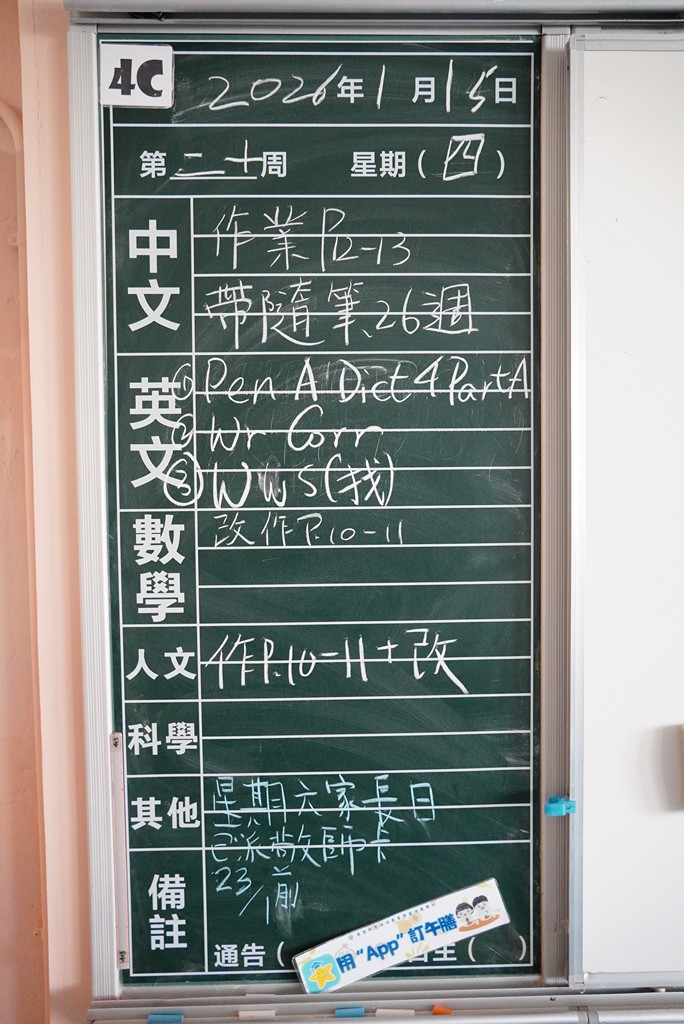 4C
2026年1月15日
第二十周 星期(四)
中文
作業P12-13
帶隨筆、26週
英文
① Pen A Dict 4 Part A
② Wr Corr
③ WWS(找)
數學
改作P.10-11
人文
作P.10-11+改
科學
其他
星期六家長日
已派敬師卡
23/1前
備註
通告(
用“App”訂午膳
至( )